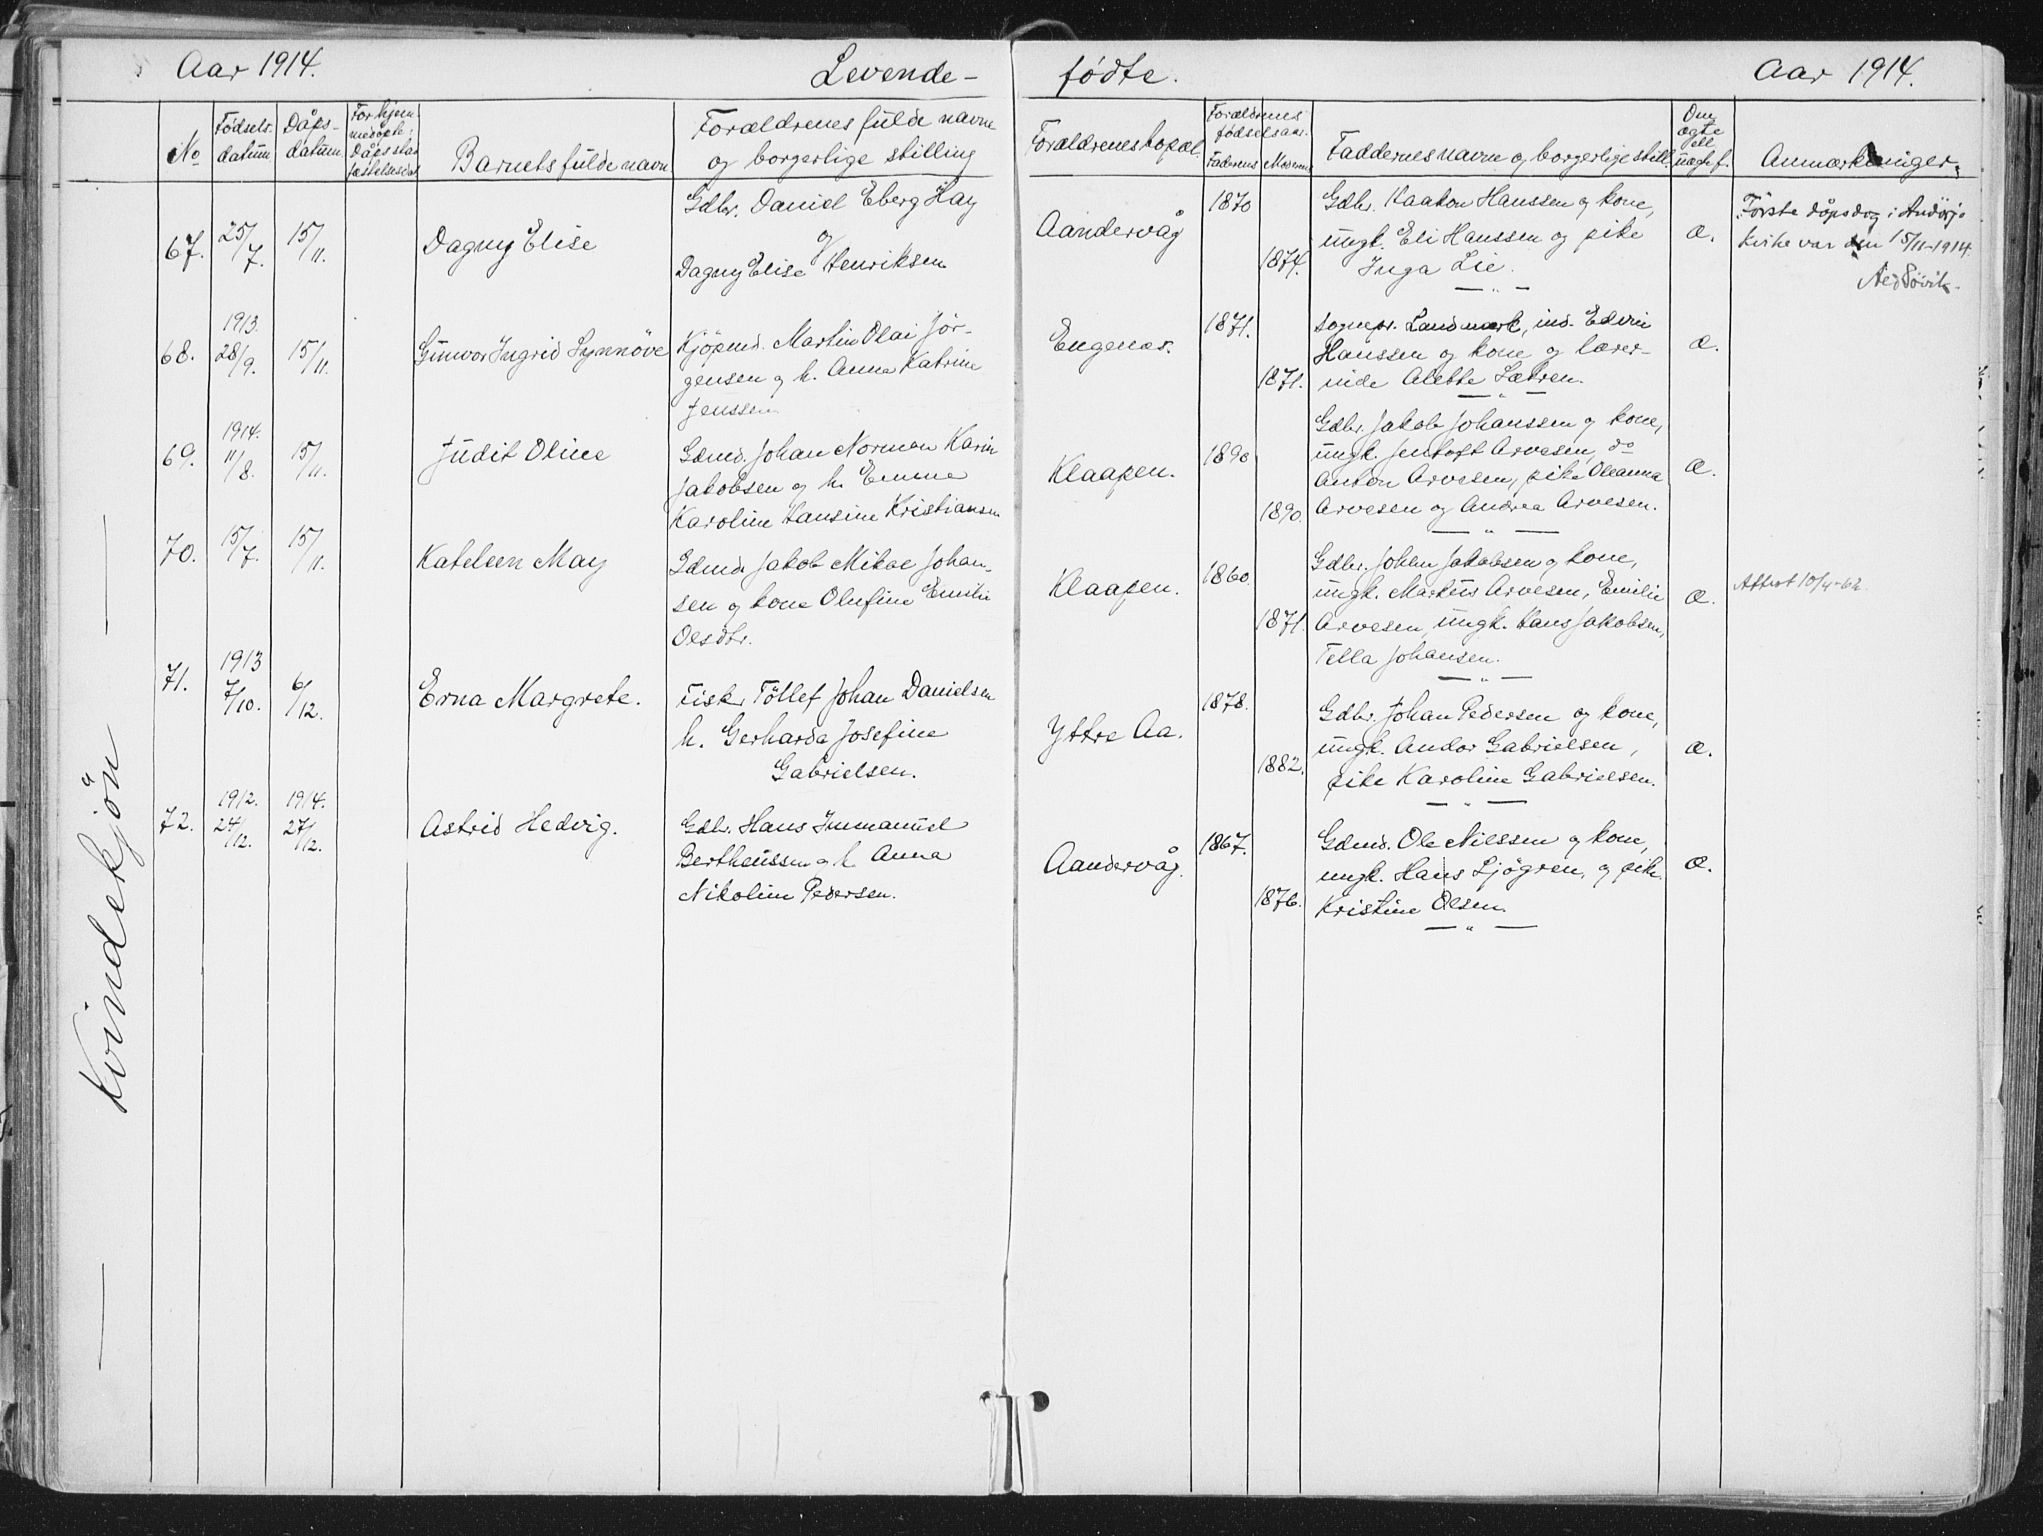 Aar 1914. Levende- fødte. Aar 1914.
Kvindekjön
No
Fødsels- datum
Dåps- datum
Barnets fulde navn
Forældrenes fulde navne
og borgerlige stilling
Forældrenes bopæl
Forældrenes
fødselsaar.
Faderens Moderens
Faddernes navne og borgerlige still.
Om
ægte
ell.
uægte f.
Anmærkninger.
67. 25/7. 15/11. Dagny Elise
Gdbr. Daniel Eberg Hay
og
Dagny Elise Henriksen
Aandervåg
1870
1874.
Gdbr. Haakon Hanssen og kone,
ungk. Eli Hanssen og pike
Inga Lie.
— " —
æ.
Første dåpsdag i Andörja
kirke var den 15/11-1914.
68. 1913. 28/9. 15/11. Gunvor Ingrid Synnöve
Kjöpmd. Martin Olai Jör-
gensen og h. Anna Katrine
Jenssen
Engenes.
1871.
1871.
Sognepr. Landmark, ind. Edvin
Hanssen og kone og lærer-
inde Alette Sætren.
— " —
æ.
69. 1914. 11/8. 15/11. Judit Oline
Gdmd. Johan Norman Karin
Jakobsen og h. Emma
Karoline Hansine Kristiansen
Klaapen.
1890
1890.
Gdbr. Jakob Johanssen og kone,
ungk. Jentoft Arvesen, do
Anton Arvesen, pike Oleanna
Arvesen og Andrea Arvesen.
— " —
æ.
70. 15/7. 15/11. Kateleen May
Gdmd. Jakob Mikal Johan-
sen og kone Olufine Emilie
Olsdtr.
Klaapen.
1860.
1871.
Gdbr. Johan Jakobsen og kone,
ungk. Markus Arvesen, Emilie
Arvesen, ungk. Hans Jakobsen,
Tella Johansen.
— " —
æ.
Attest 10/4-62.
71. 1913 7/10. 6/12. Erna Margrete.
Fisk. Töllef Johan Danielsen
h. Gerharda Josefine
Gabrielsen.
Yttre Aa.
1878.
1882.
Gdbr. Johan Pedersen og kone,
ungk. Andor Gabrielsen,
pike Karoline Gabrielsen.
— " —
æ.
72. 1912. 24/12. 1914. 27/12. Astrid Hedvig.
Gdbr. Hans Immanuel
Bertheussen og h. Anna
Nikoline Pedersen.
Aandervåg.
1867.
1876.
Gdmd. Ole Nilssen og kone,
ungk. Hans Sjögren, og pike
Kristine Olsen.
— " —
æ.